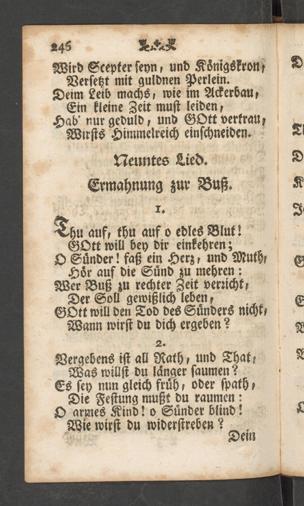 246
Wird Scepter seyn, und Königskron,
Versetzt mit guldnen Perlein.
Deim Leib machs, wie im Ackerbau,
Ein kleine Zeit must leiden,
Hab' nur geduld, und GOtt vertrau,
Wirsts Himmelreich einschneiden.
Neuntes Lied.
Ermahnung zur Buß.
1.
Thu auf, thu auf o edles Blut!
GOtt will bey dir einkehren;
O Sünder! faß ein Herz, und Muth,
Hör auf die Sünd zu mehren:
Wer Buß zu rechter Zeit verzicht,
Der Soll gewißlich leben,
GOtt will den Tod des Sünders nicht,
Wann wirst du dich ergeben?
2.
Vergebens ist all Rath, und That,
Was willst du länger saumen?
Es sey nun gleich früh, oder spath,
Die Festung mußt du raumen:
O armes Kind! o Sünder blind!
Wie wirst du widerstreben?
Dein